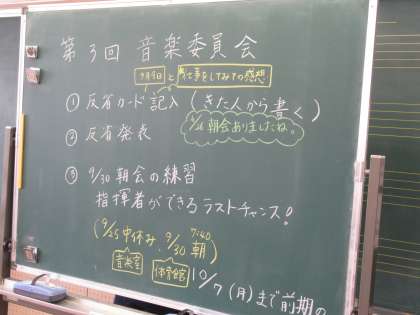 第3回 音楽委員会
9月9日 と 仕事をしてみての感想
① 反省カード記入（きた人から書く）
② 反省発表
9/26 朝会ありましたね。
③ 9/30 朝会の練習
指揮者ができるラストチャンス！
（9/25 中休み、9/30 7:40 朝）
音楽室 体育館
10/7（月）まで前期の